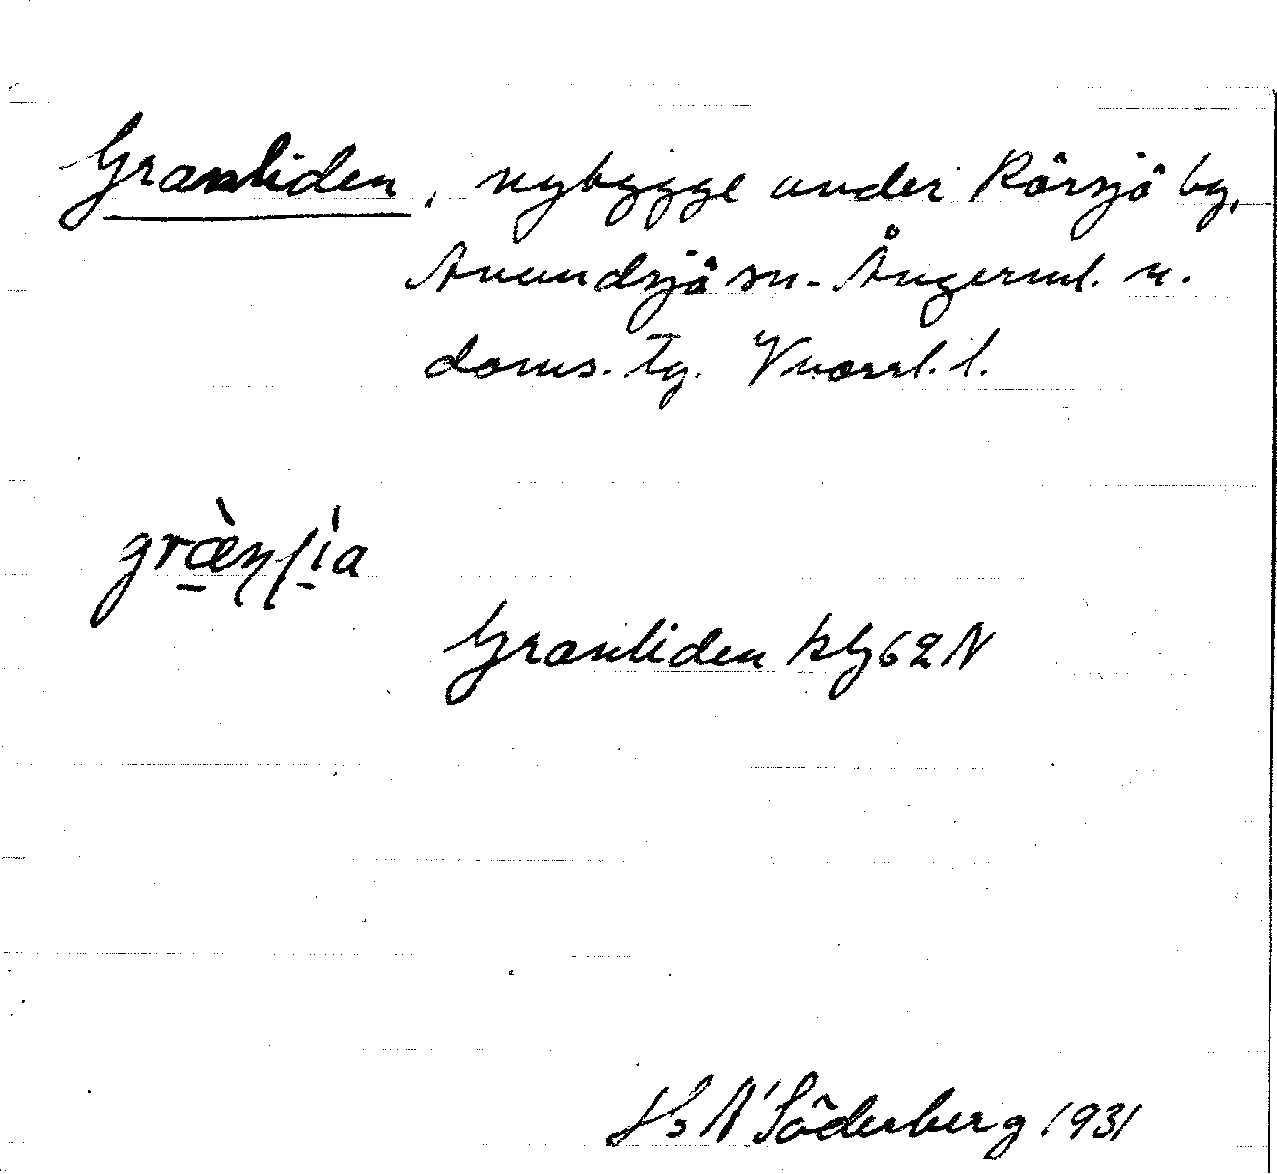 Granliden, nybygge under Rörsjö by,
Anundsjö sn. Ångerml. n.
doms. tg. Vnorrl. l.
Granliden kbl 62 N
Söderberg 1931